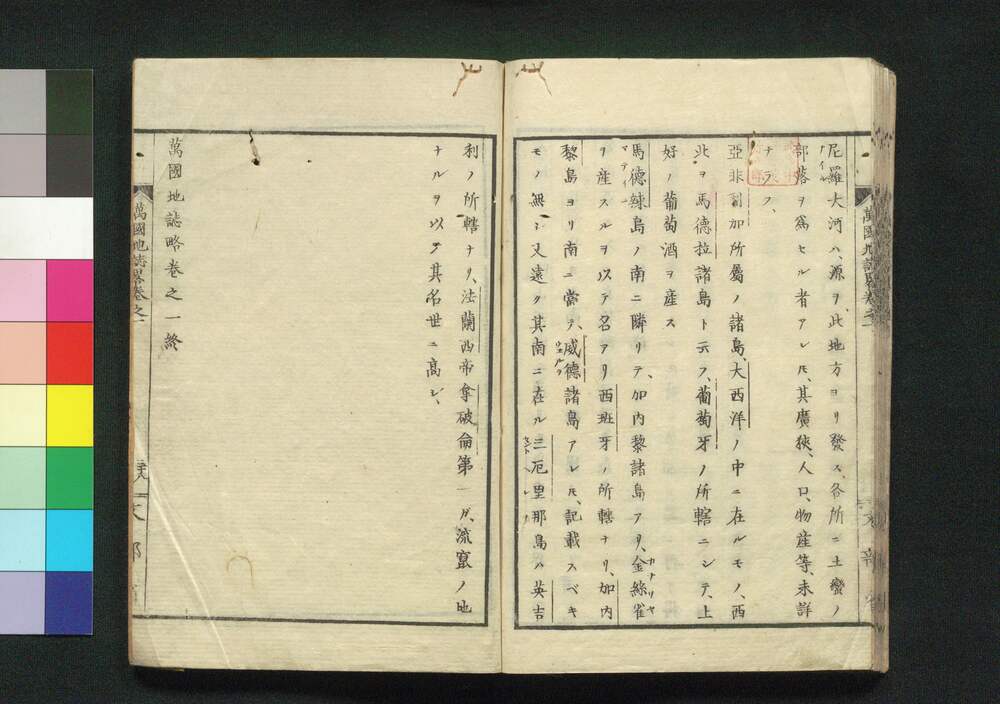 尼羅大河ハ、源ヲ此地方ヨリ發ス、各所ニ土蠻ノ
部落ヲ爲セル者アレ𪜈、其廣狹、人口、物産等、未詳
ナラス、
亞非利加所屬ノ諸島、大西洋ノ中ニ在ルモノ、西
北ヲ馬德拉諸島ト云フ、葡萄牙ノ所轄ニシテ、上
好ノ葡萄酒ヲ産ス
馬德辣島ノ南ニ隣リテ、加内黎諸島アリ、金絲雀
ヲ産スルヲ以テ名アリ西班牙ノ所轄ナリ、加内
黎島ヨリ南ニ當テ、威德諸島アレ𪜈、記載スベキ
モノ無シ又遠ク其南ニ在ル三厄里那島ハ英吉
利ノ所轄ナリ、法蘭西帝拿破侖第一ガ、流竄ノ地
ナルヲ以テ其名世ニ高シ、
萬國地誌略卷之一終
萬國地誌畧卷之一
文部省